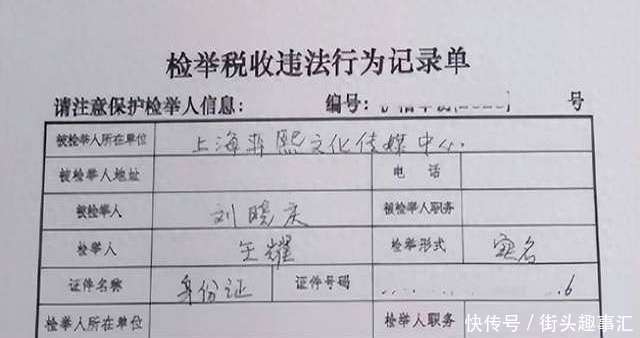 检举税收违法行为记录单
请注意保护检举人信息: 编号: 号
被检举人所在单位 上海 熙文化传媒中心.
被检举人地址 电 话
被检举人 刘晓庆 被检举人职务
检举人 王耀 检举形式 实名
证件名称 身份证 证件号码 6
检举人所在单位 检举人职务
快传号/街头趣事汇